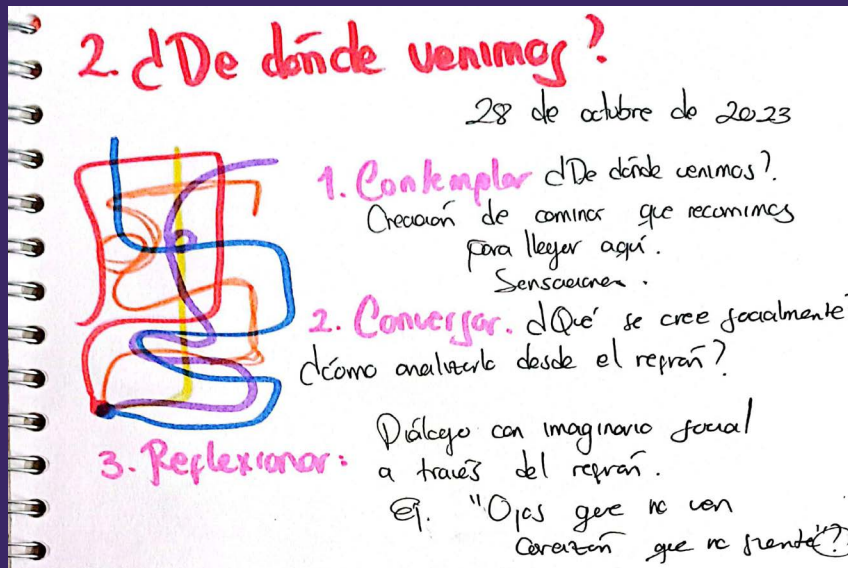 2. ¿De dónde venimos?
28 de octubre de 2023
1. Contemplar ¿De dónde venimos?.
Creación de caminos que recorrimos
para llegar aquí.
Sensaciones.
2. Conversar. ¿Qué se cree socialmente?
¿cómo analizarlo desde el refrán?
3. Reflexionar:
Diálogo con imaginario social
a través del refrán.
Ej. "Ojos que no ven
corazón que no siente"?